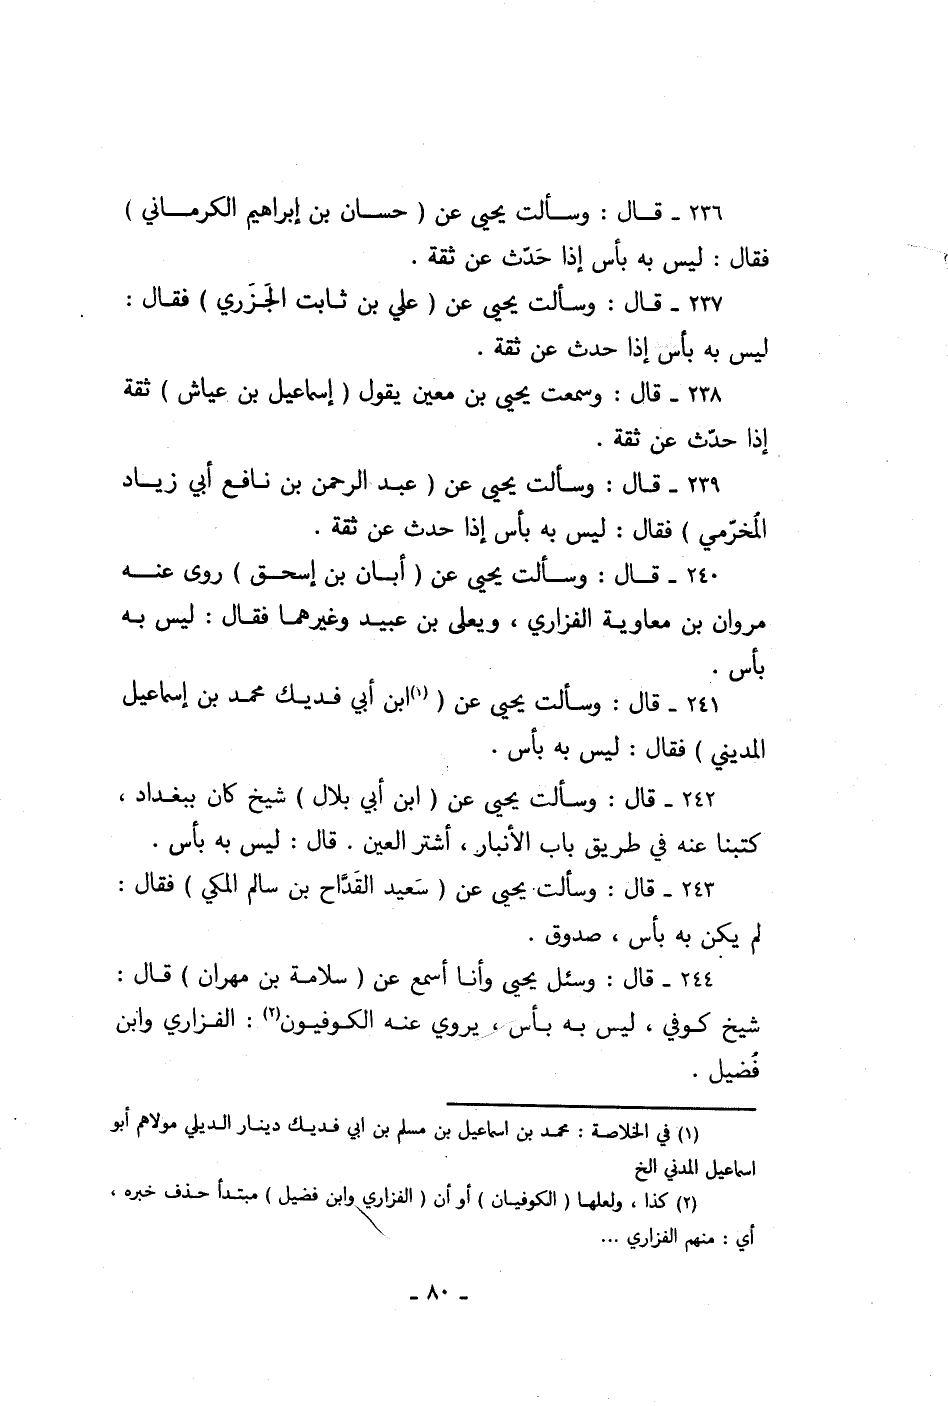 ٢٣٦ ـ قال : وسألت يحيى عن ( حسان بن إبراهيم الكرماني )
فقال : ليس به بأس إذا حَدّث عن ثقة .
٢٣٧ ـ قال : وسألت يحيى عن ( علي بن ثابت الجَزَري ) فقال :
ليس به بأس إذا حدث عن ثقة .
٢٣٨ ـ قال : وسمعت يحيى بن معين يقول ( إسماعيل بن عياش ) ثقة
إذا حدّث عن ثقة .
٢٣٩ ـ قال : وسألت يحيى عن ( عبد الرحمن بن نافع أبي زياد
المُخرّمي ) فقال : ليس به بأس إذا حدث عن ثقة .
٢٤٠ ـ قال : وسألت يحيى عن ( أبان بن إسحق ) روى عنه
مروان بن معاوية الفزاري ، ويعلى بن عبيد وغيرهما فقال : ليس به
بأس .
٢٤١ ـ قال : وسألت يحيى عن ( (١)ابن أبي فديك محمد بن إسماعيل
المديني ) فقال : ليس به بأس .
٢٤٢ ـ قال : وسألت يحيى عن ( ابن أبي بلال ) شيخ كان ببغداد ،
كتبنا عنه في طريق باب الأنبار ، أشتر العين . قال : ليس به بأس .
٢٤٣ ـ قال : وسألت يحيى عن ( سَعيد القَدَّاح بن سالم المكي ) فقال :
لم يكن به بأس ، صدوق .
٢٤٤ ـ قال : وسئل يحيى وأنا أسمع عن ( سلامة بن مهران ) قال :
شيخ كوفي ، ليس به بأس ، يروي عنه الكوفيون(٢) : الفزاري وابن
فُضيل .
(١) في الخلاصة : محمد بن اسماعيل بن مسلم بن ابي فديك دينار الديلي مولاهم أبو
اسماعيل المدني الخ
(٢) كذا ، ولعلها ( الكوفيان ) أو أن ( الفزاري وابن فضيل ) مبتدأ حذف خبره ،
أي : منهم الفزاري ...
ـ ٨٠ ـ